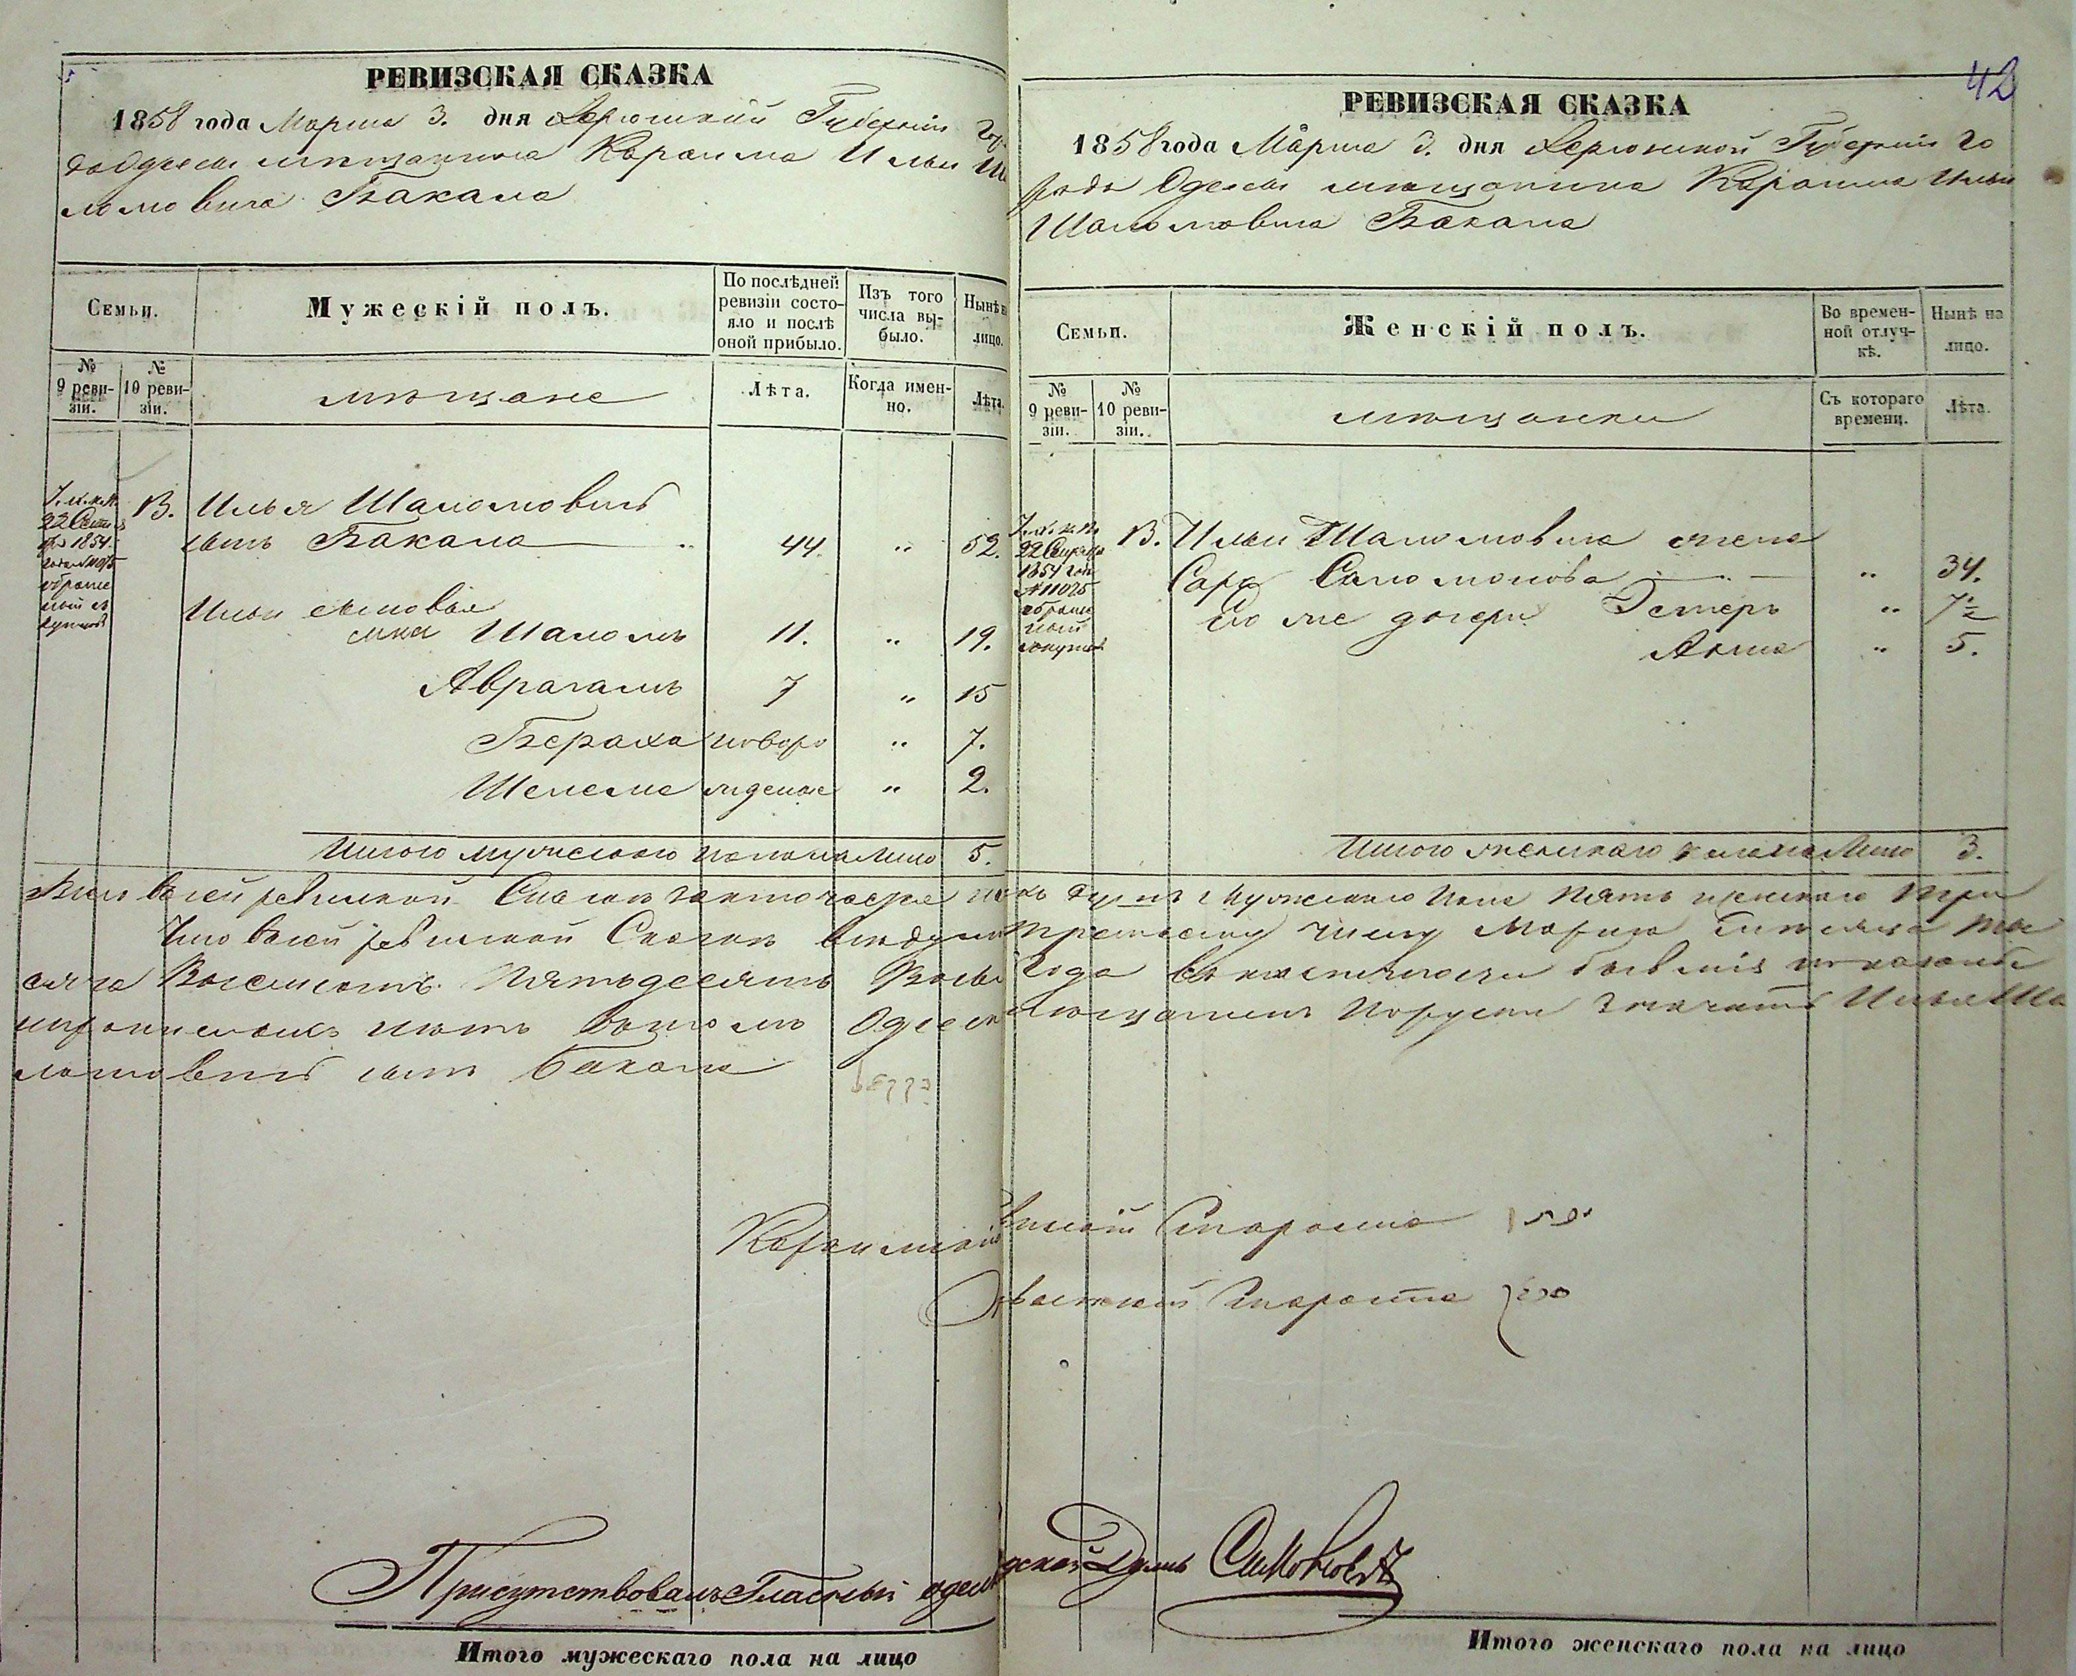 РЕВИЗСКАЯ СКАЗКА
1858 года Марта 3. дня Херсонской Губерніи Го
рода Одессы мѣщанина Караима Ильи Ша
ломовича Бакала
Семьи.
Мужескій полъ.
По послѣдней ревизіи состояло и послѣ оной прибыло.
Изъ того числа выбыло.
Нынѣ на лицо.
№ 9 ревизіи.
№ 10 ревизіи.
мѣщане
Лѣта.
Когда именно.
Лѣта.
22 Сентя
бря 1854.
13. Илья Шаломовичъ
сынъ Бакала 44. " 52.
Ильи сыновья
Шаломъ 11. " 19.
Аврагамъ 7 " 15
Бераха новоро " 7.
Шелеме жденые " 2.
Итого мужескаго пола на лицо 5.
РЕВИЗСКАЯ СКАЗКА
42
1858 года Марта 3. дня Херсонской Губерніи Го
рода Одессы мѣщанина Караима Ильи
Шаломовича Бакала
Семьи.
Женскій полъ.
Во временной отлучкѣ.
Нынѣ на лицо.
№ 9 ревизіи.
№ 10 ревизіи.
мѣщанки
Съ котораго времени.
Лѣта.
22 Сентября
1854 года
№ 11025
13. Ильи Шаломовича жена
Сара Саломонова " 34.
Его же дочери Эстеръ " 7½
Анна " 5.
Итого женскаго пола на лицо 3.
Всего въ сей ревизской Сказкѣ душъ Мужескаго Пола Пять женскаго Три
Что въ сей ревизской Сказкѣ третьему числу Марта мѣсяца ты
сяча Восемсотъ Пятьдесятъ Года въ наличности бывшія показаны
и прописныхъ нѣтъ въ томъ Одесскій мѣщанинъ Порусски значитъ Илья Ша
ломовичъ сынъ Бакала
Караимскій Староста
Староста
Присутствовалъ Гласный Одесской Городской Думы Симоновъ
Итого мужескаго пола на лицо
Итого женскаго пола на лицо